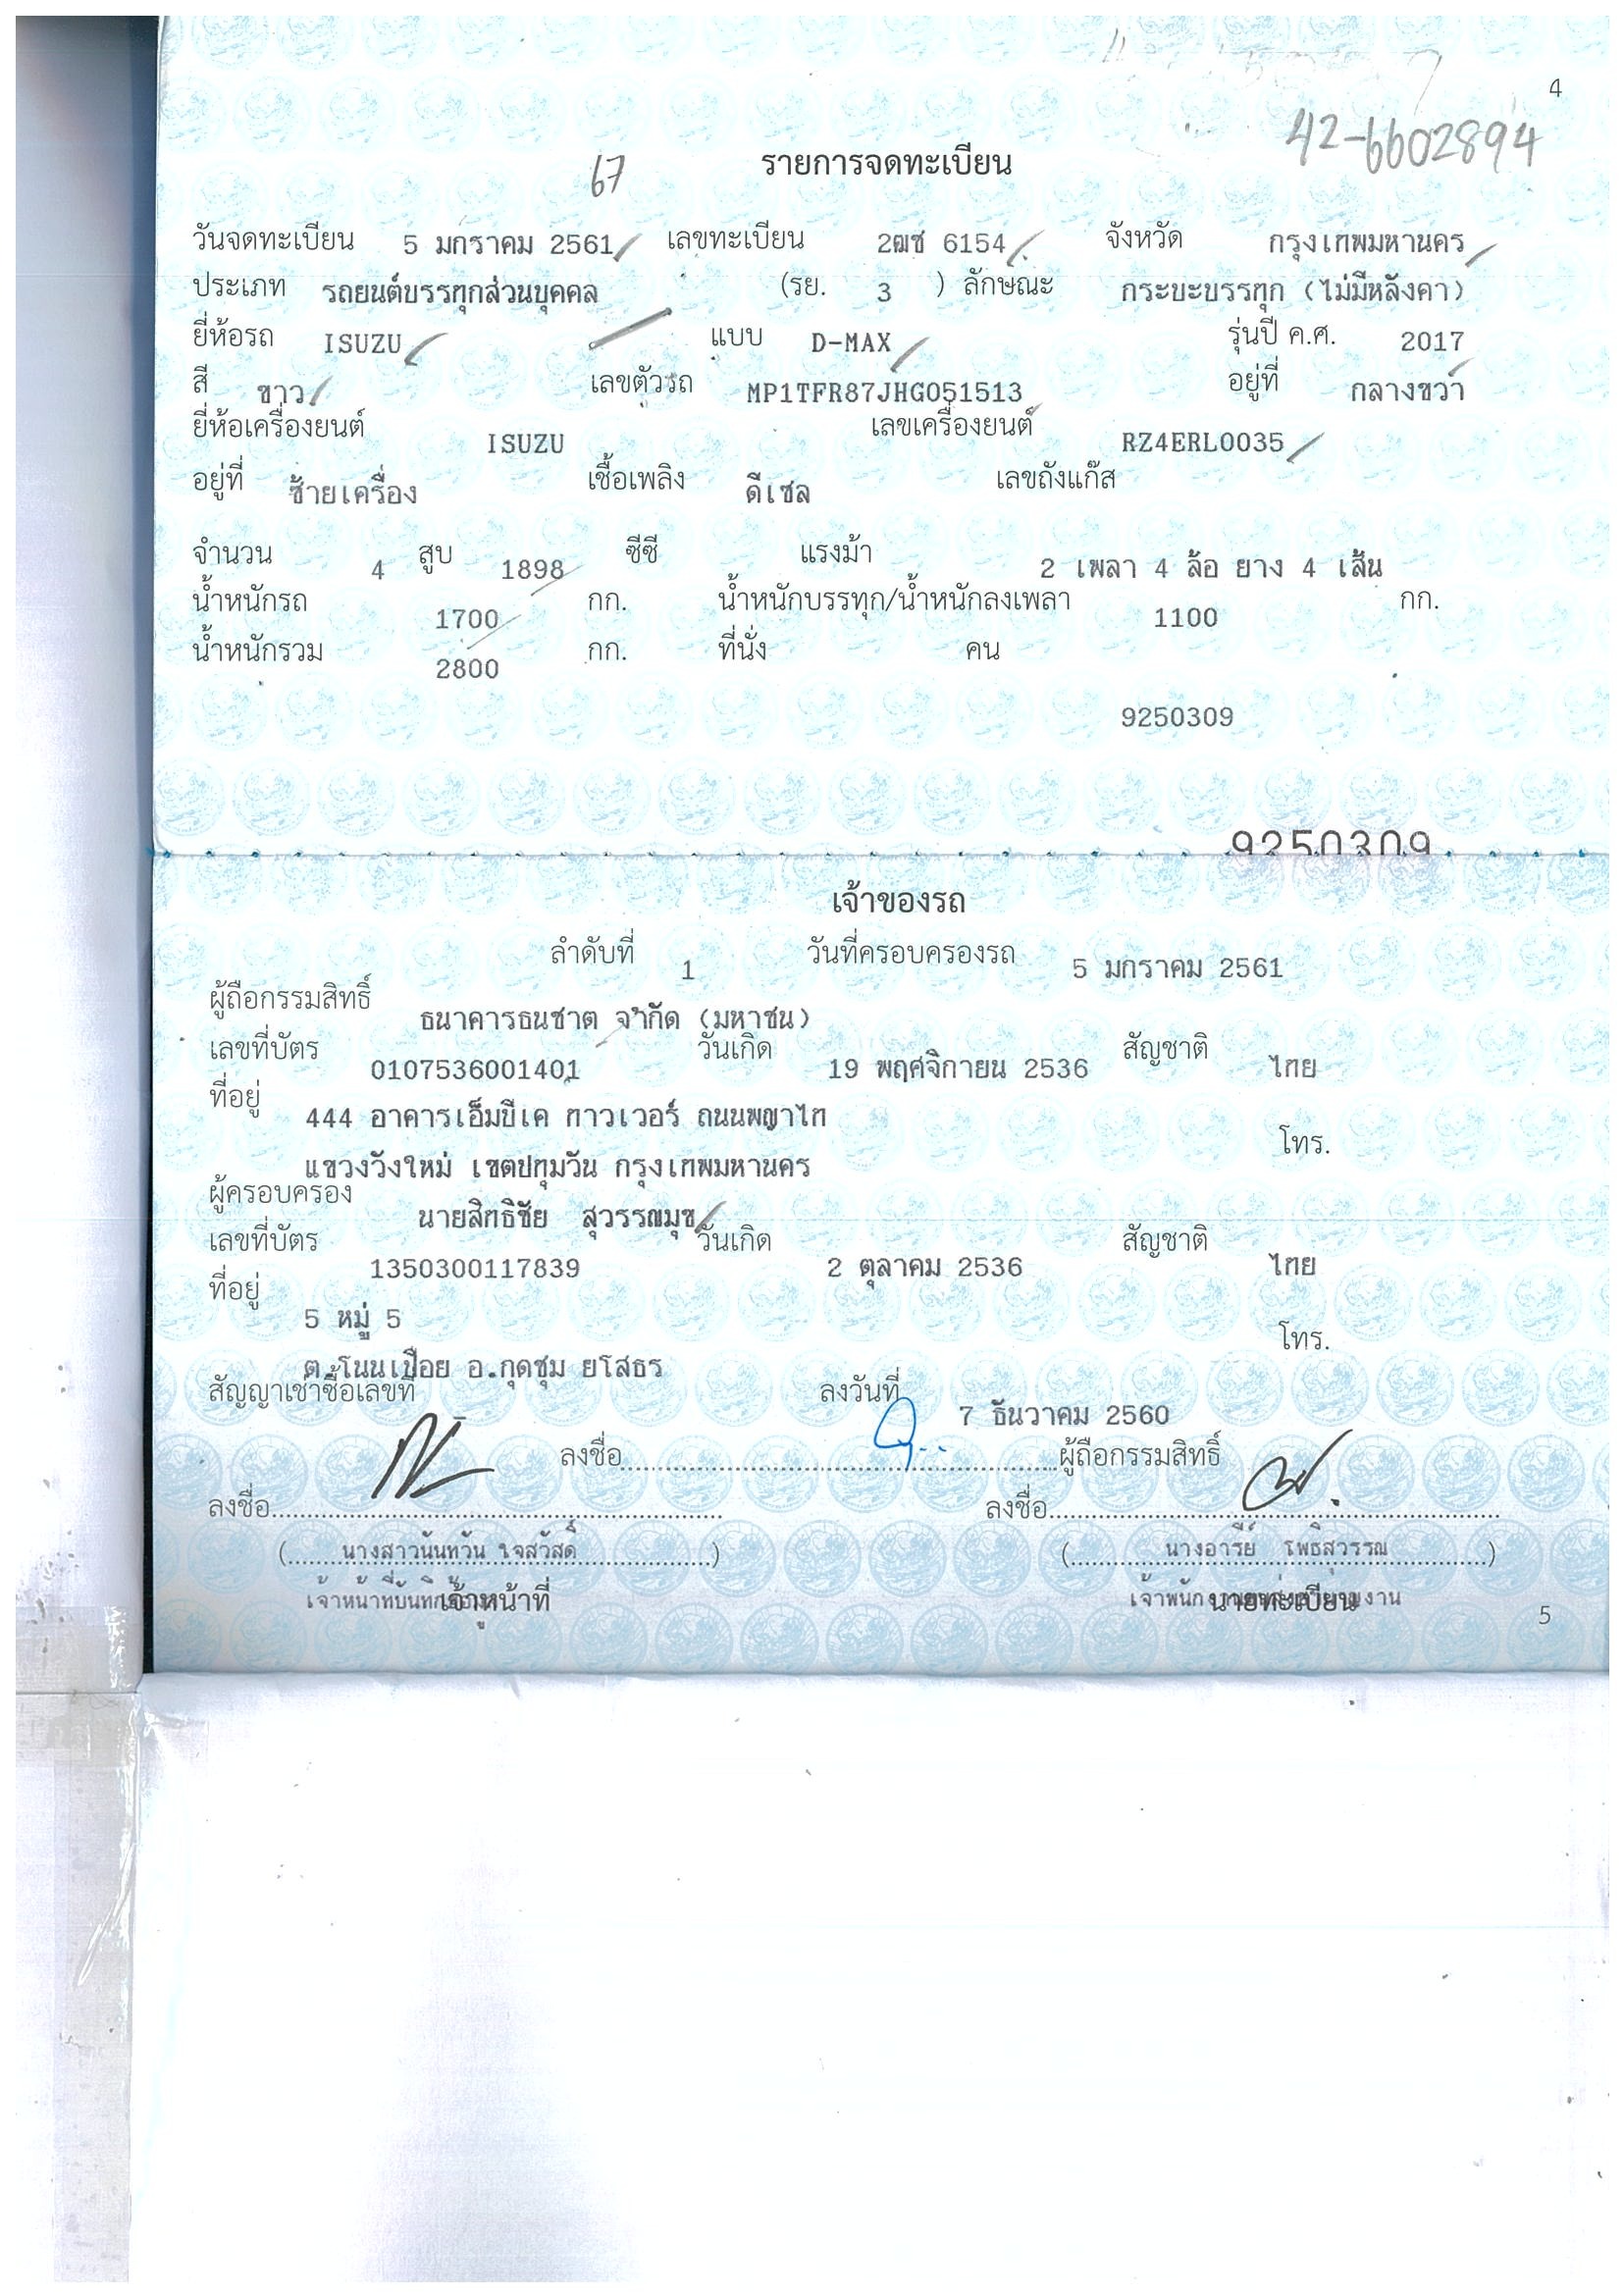 4
42-6602894
67 รายการจดทะเบียน
วันจดทะเบียน 5 มกราคม 2561 เลขทะเบียน 2ฒช 6154 จังหวัด กรุงเทพมหานคร
ประเภท รถยนต์บรรทุกส่วนบุคคล (รย. 3 ) ลักษณะ กระบะบรรทุก (ไม่มีหลังคา)
ยี่ห้อรถ ISUZU แบบ D-MAX รุ่นปี ค.ศ. 2017
สี ขาว เลขตัวรถ MP1TFR87JHG051513 อยู่ที่ กลางขวา
ยี่ห้อเครื่องยนต์ ISUZU เลขเครื่องยนต์ RZ4ERL0035
อยู่ที่ ซ้ายเครื่อง เชื้อเพลิง ดีเซล เลขถังแก๊ส
จำนวน 4 สูบ 1898 ซีซี แรงม้า 2 เพลา 4 ล้อ ยาง 4 เส้น
น้ำหนักรถ 1700 กก. น้ำหนักบรรทุก/น้ำหนักลงเพลา 1100 กก.
น้ำหนักรวม 2800 กก. ที่นั่ง คน
9250309
9250309
เจ้าของรถ
ลำดับที่ 1 วันที่ครอบครองรถ 5 มกราคม 2561
ผู้ถือกรรมสิทธิ์ ธนาคารธนชาต จำกัด (มหาชน)
เลขที่บัตร 0107536001401 วันเกิด 19 พฤศจิกายน 2536 สัญชาติ ไทย
ที่อยู่ 444 อาคารเอ็มบีเค ทาวเวอร์ ถนนพญาไท
โทร.
แขวงวังใหม่ เขตปทุมวัน กรุงเทพมหานคร
ผู้ครอบครอง นายสิทธิชัย สุวรรณมุข
เลขที่บัตร 1350300117839 วันเกิด 2 ตุลาคม 2536 สัญชาติ ไทย
ที่อยู่ 5 หมู่ 5
โทร.
ต.โนนเปือย อ.กุดชุม ยโสธร
สัญญาเช่าซื้อเลขที่ - ลงวันที่ 7 ธันวาคม 2560
ลงชื่อ ผู้ถือกรรมสิทธิ์
ลงชื่อ ลงชื่อ
(นางสาวนันทวัน ใจสวัสดิ์) (นางอารีย์ โพธิสุวรรณ)
เจ้าหน้าที่ นายทะเบียน
5